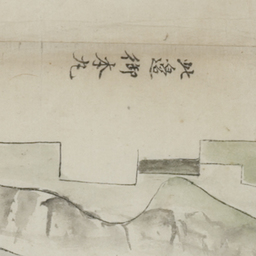 此邉御本丸